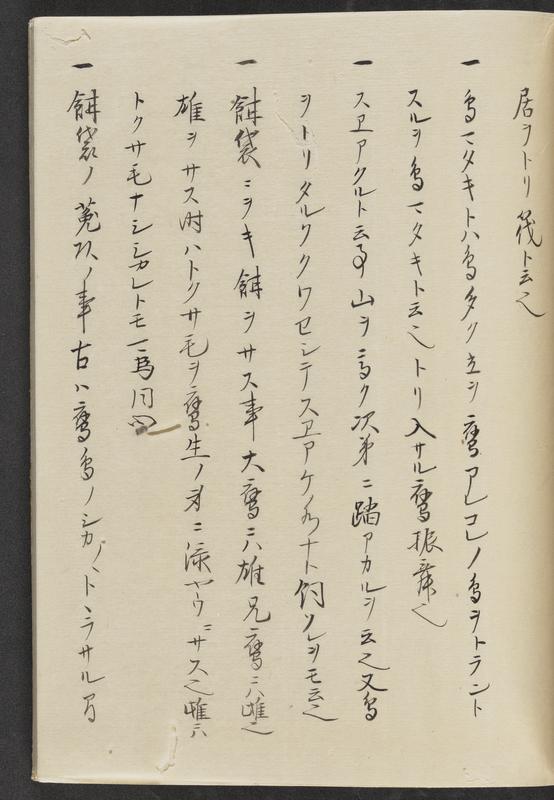 居ヲトリ筏ト云也
一 鳥マタキトハ鳥多ク立ヲ鷹アレコレノ鳥ヲトラント
スルヲ鳥マタキト云也トリ入サル鷹振舞也
一 スヱアクルト云事山ヲ高ク次第ニ踏アカルヲ云也又鳥
ヲトリタルワクワセシテスヱアケノ ナト飼ソレヲモ云也
一 餌袋ニヲキ餌ヲサス事大鷹ニハ雄兄鷹ニハ雌也
雄ヲサス時ハトクサ毛ヲ鷹生ノ ニ深ヤウニサス也雌ニハ
トクサ毛ナシシカレトモ 鳥同
一 餌袋ノ菟 ノ事古ハ鷹鳥ノシカノヽトヽラサル